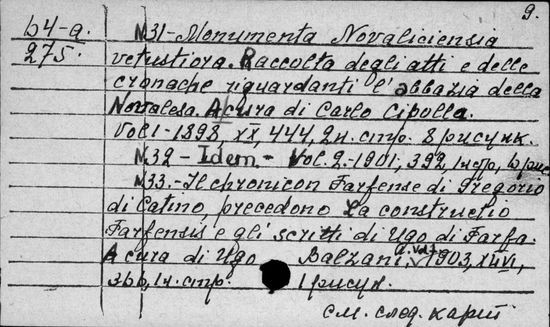 9.
64-a. N31-Monumenta Novaliciensia
275. vetustiora. Raccolta degli atti e delle
cronache riguardanti l'abbazia della
Novalesa. A cura di Carlo Cipolla.
Vol 1-1898, XX, 444, 2н. стр. 8 рисунк.
N32 - Idem. - Vol. 2.-1901, 392, 1н стр, 6 рис
N33.-Il chronicon Farfense di Gregorio
di Catino, precedono La constructio
Farfensis e gli scritti di Ugo di Farfa.
A cura di Ugo Balzani. Vol 1 1903,
366, 1н. стр. 1 рисун.
см. след. карт